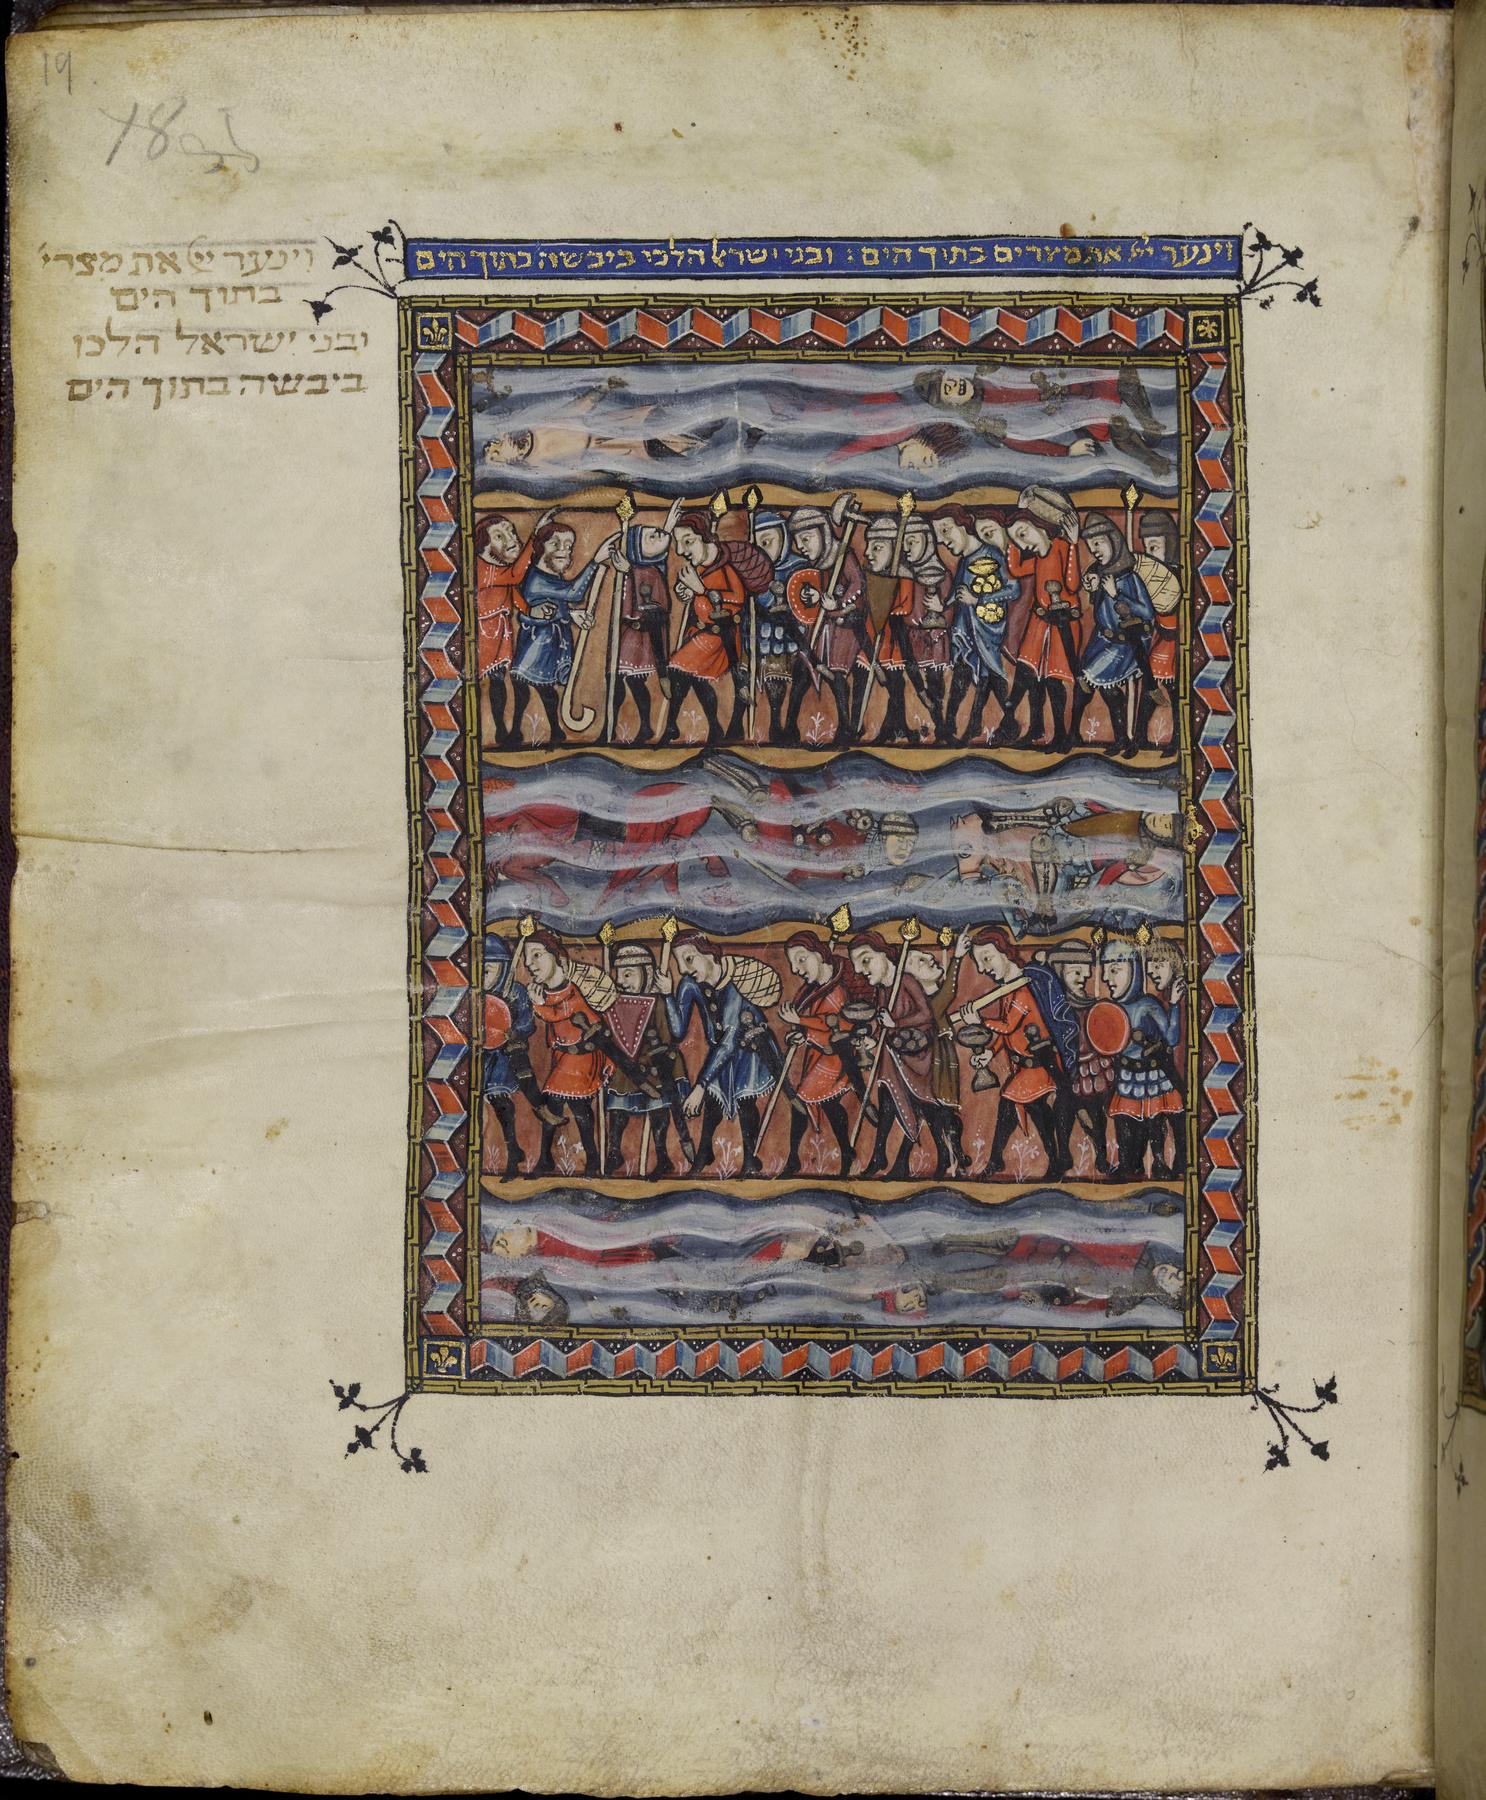 19
18
וינער יי את מצרים בתוך הים : ובני ישראל הלכו ביבשה בתוך הים
וינער יי את מצרי׳
בתוך הים
ובני ישראל הלכו
ביבשה בתוך הים